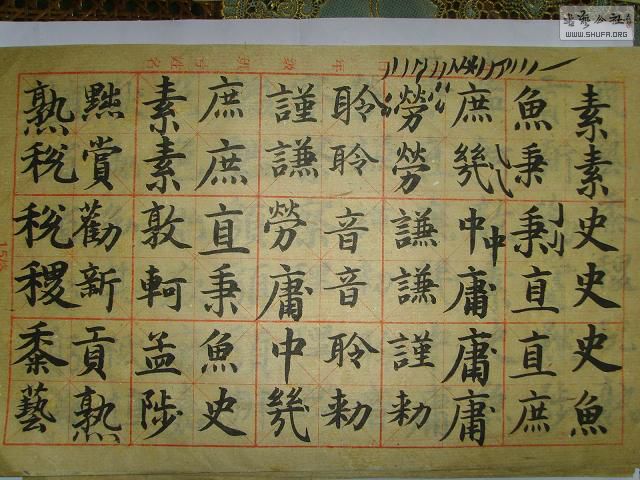 素素史史史魚
魚秉秉直直庶
庶幾中中庸庸庸
勞勞謙謙謹勑
聆聆音音聆勑
謹謙勞庸中幾
庶庶直秉魚史
素素敦軻孟陟
黜賞勸新貢熟
熟稅稅稷黍藝
书艺公社
WWW.SHUFA.ORG